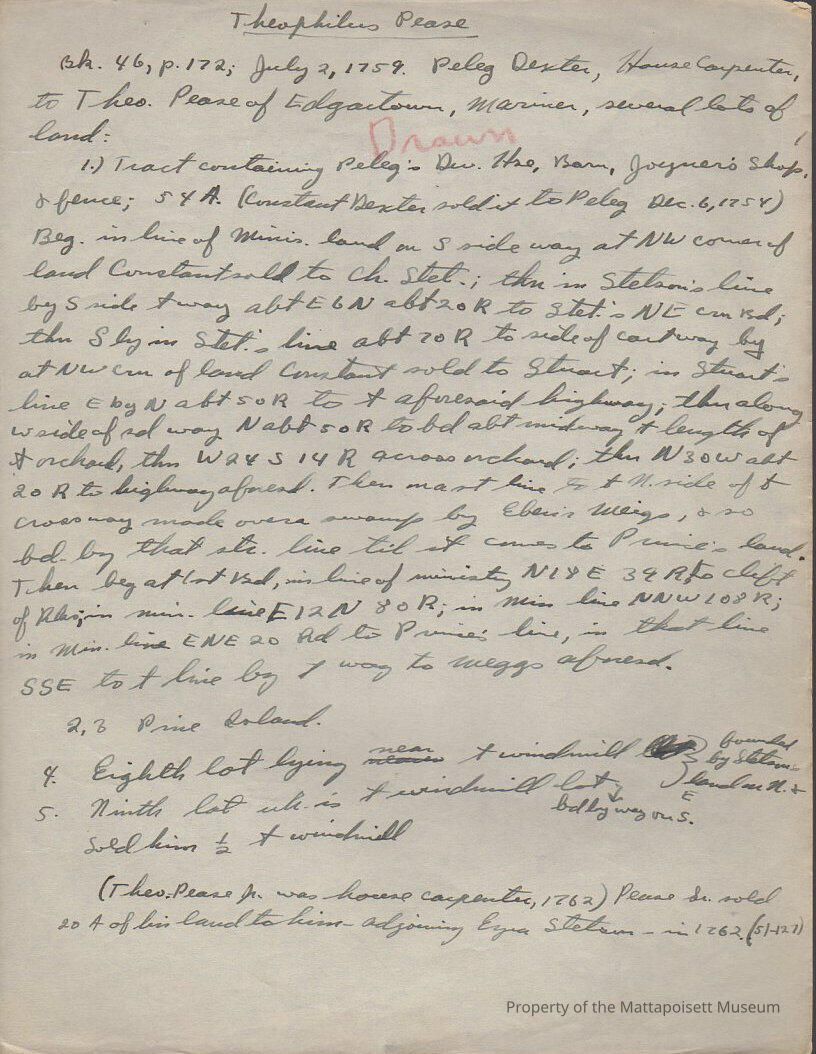 Theophilus Pease
Bk. 46, p. 172; July 2, 1759. Peleg Dexter, House Carpenter,
to Theo. Pease of Edgartown, Mariner, several lots of
land:
Drawn
1.) Tract containing Peleg's Dw. Hse, Barn, Joyner's Shop,
& fence; 54 A. (Constant Dexter sold it to Peleg Dec. 6, 1754)
Beg. in line of Minis. land on S side way at NW corner of
land Constant sold to Ch. Stet.; thn in Stetson's line
by S side t way abt E6N abt 20 R to Stet.'s NE crn Bd;
thn Sly in Stet.'s line abt 70 R to side of cartway by
at NW crn of land Constant sold to Stuart; in Stuart's
line E by N abt 50 R to t aforesaid highway; thn along
W side of sd way N abt 50 R to bd abt midway t length of
t orchard, thn W24S 14 R across orchard; thn N30W abt
20 R to highway aforesd. Then on a st line to t N. side of t
crossway made over a swamp by Eben'r Meigs, & so
bd. by that str. line til it comes to Prince's land.
Then beg at 1st Bd, in line of ministry N18E 39 R to cleft
of Rks; in min. line E12N 80 R; in Min line NNW 108 R;
in Min. line ENE 20 Rd to Prince's line, in that line
SSE to t line by t way to Meggs aforesd.
2, 3 Pine Island.
4. Eighth lot lying near t windmill lot bounded
by Stetson's
land on N. &
E
5. Ninth lot wh. is t windmill lot,
bd by way on S.
Sold him ½ t windmill
(Theo. Pease jr. was house carpenter, 1762) Pease Sr. sold
20 A of his land to him - adjoining Ezra Stetson - in 1762. (51-127)
Property of the Mattapoisett Museum